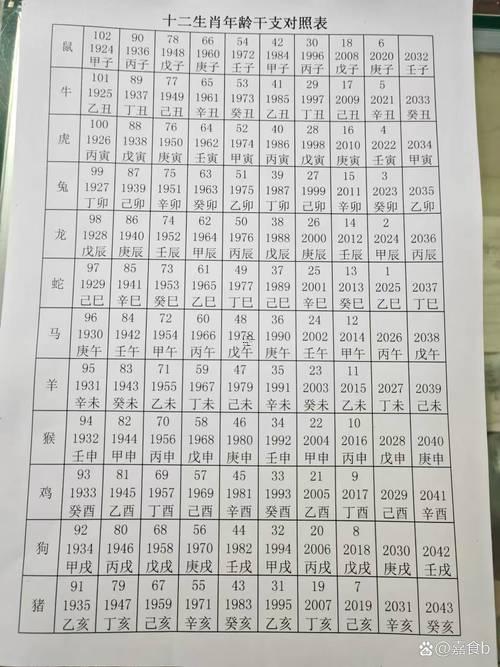 十二生肖年龄干支对照表
鼠
102 90 78 66 54 42 30 18 6
1924 1936 1948 1960 1972 1984 1996 2008 2020 2032
甲子 丙子 戊子 庚子 壬子 甲子 丙子 戊子 庚子 壬子
牛
101 89 77 65 53 41 29 17 5
1925 1937 1949 1961 1973 1985 1997 2009 2021 2033
乙丑 丁丑 己丑 辛丑 癸丑 乙丑 丁丑 己丑 辛丑 癸丑
虎
100 88 76 64 52 40 28 16 4
1926 1938 1950 1962 1974 1986 1998 2010 2022 2034
丙寅 戊寅 庚寅 壬寅 甲寅 丙寅 戊寅 庚寅 壬寅 甲寅
兔
99 87 75 63 51 39 27 15 3
1927 1939 1951 1963 1975 1987 1999 2011 2023 2035
丁卯 己卯 辛卯 癸卯 乙卯 丁卯 己卯 辛卯 癸卯 乙卯
龙
98 86 74 62 50 38 26 14 2
1928 1940 1952 1964 1976 1988 2000 2012 2024 2036
戊辰 庚辰 壬辰 甲辰 丙辰 戊辰 庚辰 壬辰 甲辰 丙辰
蛇
97 85 73 61 49 37 25 13 1
1929 1941 1953 1965 1977 1989 2001 2013 2025 2037
己巳 辛巳 癸巳 乙巳 丁巳 己巳 辛巳 癸巳 乙巳 丁巳
马
96 84 72 60 48 36 24 12
1930 1942 1954 1966 1978 1990 2002 2014 2026 2038
庚午 壬午 甲午 丙午 戊午 庚午 壬午 甲午 丙午 戊午
羊
95 83 71 59 47 35 23 11
1931 1943 1955 1967 1979 1991 2003 2015 2027 2039
辛未 癸未 乙未 丁未 己未 辛未 癸未 乙未 丁未 己未
猴
94 82 70 58 46 34 22 10
1932 1944 1956 1968 1980 1992 2004 2016 2028 2040
壬申 甲申 丙申 戊申 庚申 壬申 甲申 丙申 戊申 庚申
鸡
93 81 69 57 45 33 21 9
1933 1945 1957 1969 1981 1993 2005 2017 2029 2041
癸酉 乙酉 丁酉 己酉 辛酉 癸酉 乙酉 丁酉 己酉 辛酉
狗
92 80 68 56 44 32 20 8
1934 1946 1958 1970 1982 1994 2006 2018 2030 2042
甲戌 丙戌 戊戌 庚戌 壬戌 甲戌 丙戌 戊戌 庚戌 壬戌
猪
91 79 67 55 43 31 19 7
1935 1947 1959 1971 1983 1995 2007 2019 2031 2043
乙亥 丁亥 己亥 辛亥 癸亥 乙亥 丁亥 己亥 辛亥 癸亥
@嘉食b